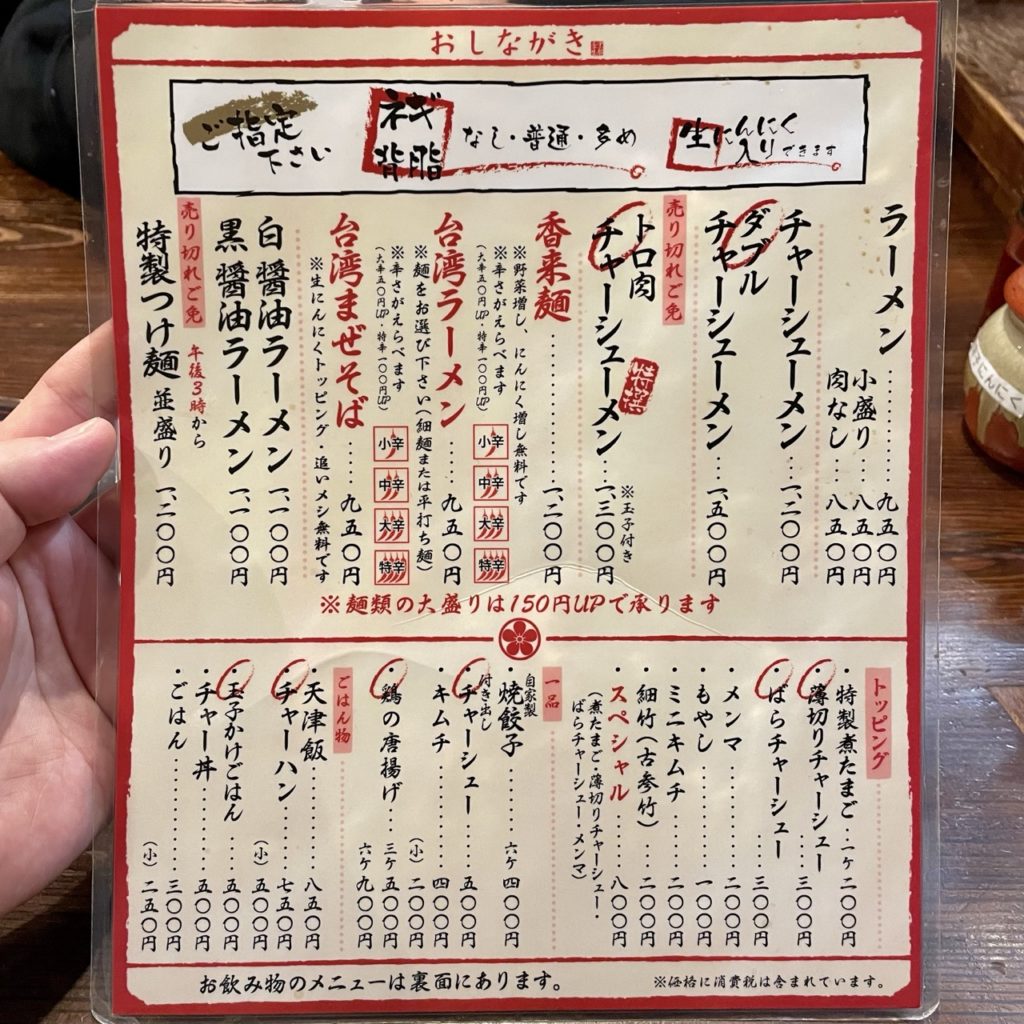 おしながき
ご指定下さい
ネギ
背脂
なし・普通・多め
生にんにく入りできます
ラーメン……九五〇円
小盛り……八五〇円
肉なし……八五〇円
チャーシューメン…一、二〇〇円
ダブル
チャーシューメン…一、五〇〇円
売り切れご免
トロ肉
チャーシューメン…一、三〇〇円
※玉子付き
香来麺……一、二〇〇円
※野菜増し、にんにく増し無料です
※辛さがえらべます
(大辛五〇円UP・特辛一〇〇円UP)
小辛
中辛
大辛
特辛
台湾ラーメン……九五〇円
※麺をお選び下さい(細麺または平打ち麺)
※辛さがえらべます
(大辛五〇円UP・特辛一〇〇円UP)
小辛
中辛
大辛
特辛
台湾まぜそば……九五〇円
※生にんにくトッピング・追いメシ無料です
白醤油ラーメン 一、一〇〇円
黒醤油ラーメン 一、一〇〇円
売り切れご免
午後3時から
特製つけ麺 並盛り 一、二〇〇円
※麺類の大盛りは150円UPで承ります
トッピング
・特製煮たまご…一ケ 二〇〇円
・薄切りチャーシュー…三〇〇円
・ばらチャーシュー…三〇〇円
・メンマ……二〇〇円
・もやし……一〇〇円
・ミニキムチ……二〇〇円
・細竹(古参竹)……二〇〇円
・スペシャル……八〇〇円
(煮たまご・薄切りチャーシュー・
ばらチャーシュー・メンマ)
一品
自家製
・焼餃子……六ケ 四〇〇円
付き出し
・チャーシュー……五〇〇円
・キムチ……四〇〇円
(小)二〇〇円
・鶏の唐揚げ…三ケ 五〇〇円
六ケ 九〇〇円
ごはん物
・天津飯……八五〇円
・チャーハン……七五〇円
(小)五〇〇円
・玉子かけごはん……五〇〇円
・チャー丼……五〇〇円
・ごはん……三〇〇円
(小)二五〇円
お飲み物のメニューは裏面にあります。
※価格に消費税は含まれています。